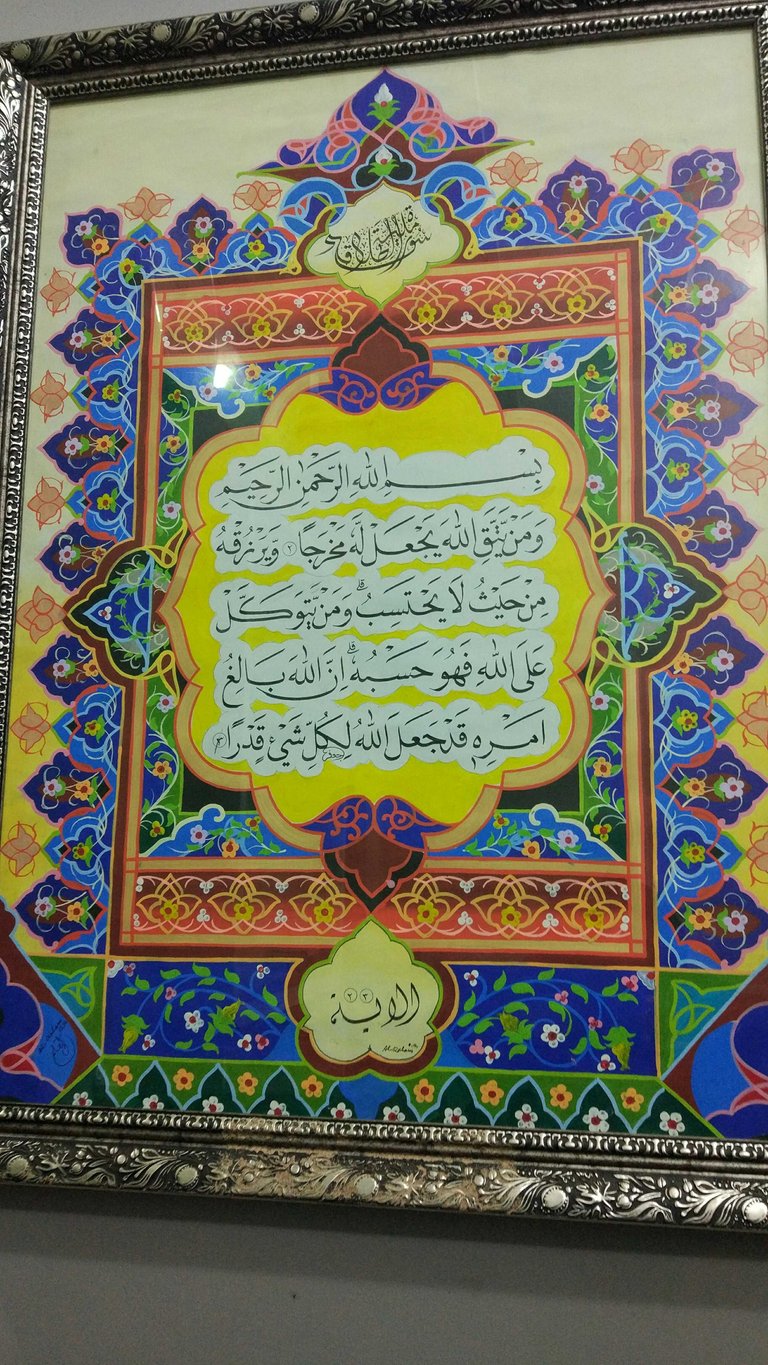 سورة الطلاق
بِسْمِ اللهِ الرَّحْمٰنِ الرَّحِيْمِ
وَمَنْ يَّتَّقِ اللهَ يَجْعَلْ لَّهٗ مَخْرَجًا ۲ وَيَرْزُقْهُ
مِنْ حَيْثُ لَا يَحْتَسِبُ ۗ وَمَنْ يَّتَوَكَّلْ
عَلَى اللهِ فَهُوَ حَسْبُهٗ ۗ اِنَّ اللهَ بَالِغُ
اَمْرِهٖ قَدْ جَعَلَ اللهُ لِكُلِّ شَيْءٍ قَدْرًا ۳
الاية
۲ ۳